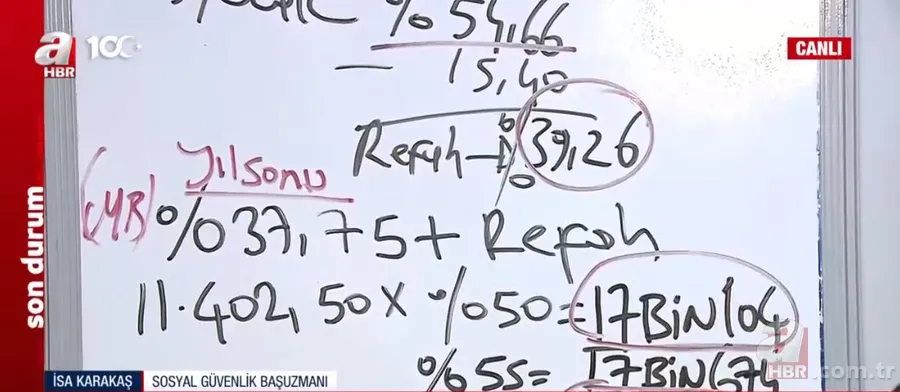 a
HBR
100
CANLI
% 54,66
— 15,40
Refah → % 39,26
Yılsonu
(MB) % 37,75 + Refah
11.402,50 x %50 = 17BİN104
%55 = 17BİN674
son durum
İSA KARAKAŞ SOSYAL GÜVENLİK BAŞUZMANI
a
HBR.com.tr